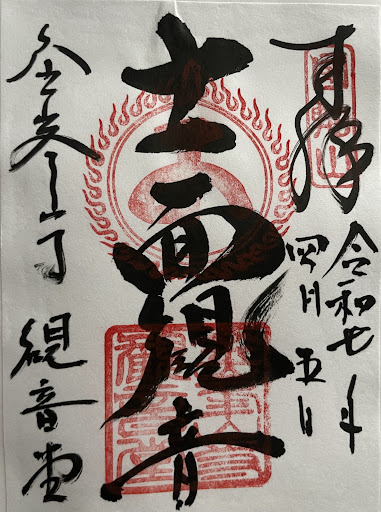 奉拝
令和七年
四月五日
十一面観音
金峯山寺
観音堂